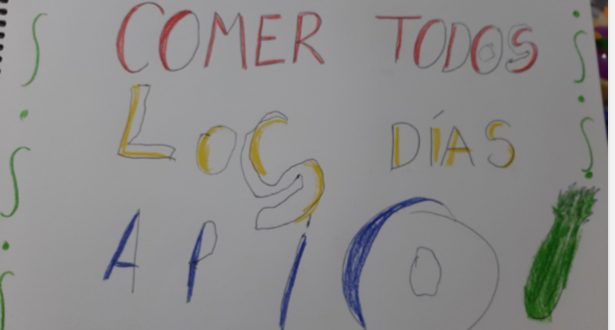 COMER TODOS
LOS DÍAS
APIO